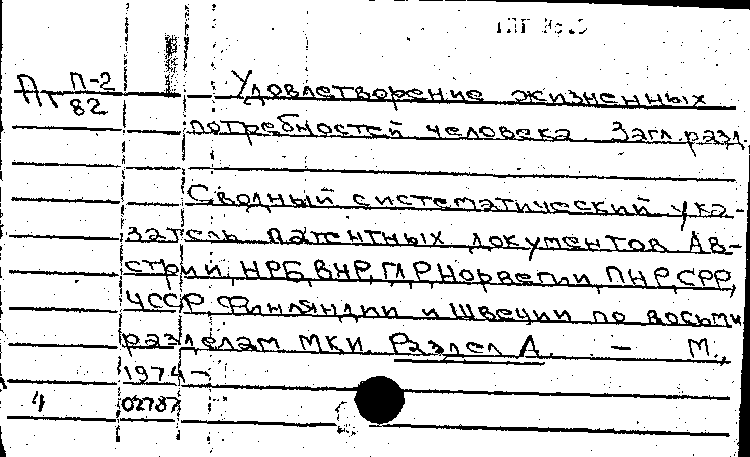 Пт П-2
82
Удовлетворение жизненных
потребностей человека. Загл. разд.
Сводный систематический ука-
затель патентных документов Ав-
стрии, НРБ, ВНР, ГДР, Норвегии, ПНР, СРР,
ЧССР, Финляндии и Швеции по восьми
разделам МКИ. Раздел А. — М.,
1974 —
4 02787